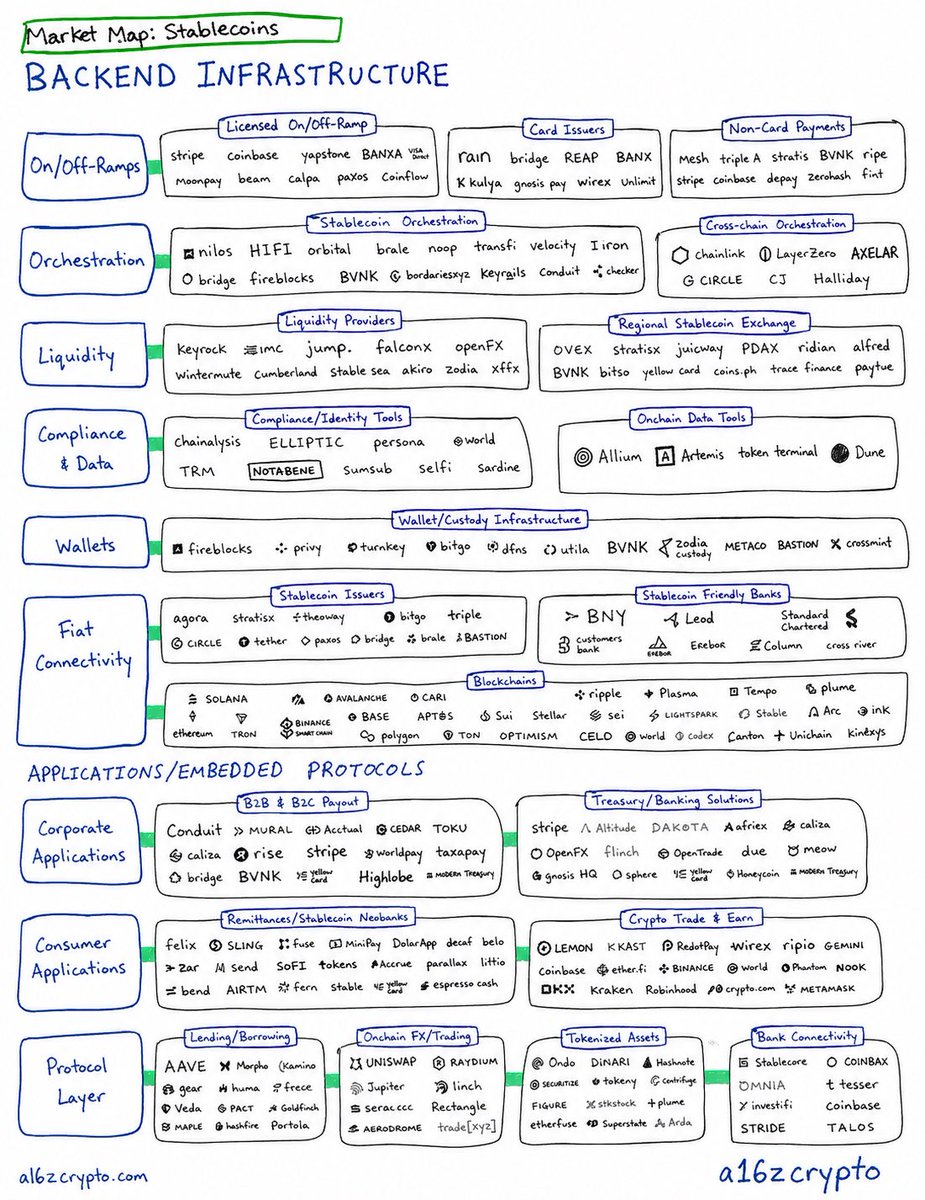 Market Map: Stablecoins
BACKEND INFRASTRUCTURE
On/Off-Ramps
Licensed On/Off-Ramp
stripe coinbase yapstone BANXA VISA Direct
Moonpay beam calpa paxos Coinflow
Card Issuers
rain bridge REAP BANX
K kulya gnosis pay wirex Unlimit
Non-Card Payments
Mesh triple A stratis BVNK ripe
stripe coinbase depay zerohash fint
Orchestration
Stablecoin Orchestration
nilos HIFI orbital brale noop transfi velocity I iron
bridge fireblocks BVNK bordariesxyz Keyrails Conduit checker
Cross-chain Orchestration
chainlink LayerZero AXELAR
CIRCLE CJ Halliday
Liquidity
Liquidity Providers
Keyrock IMC jump. falconx openFX
Wintermute Cumberland stable sea akiro zodia xffx
Regional Stablecoin Exchange
OVEX stratisx juicway PDAX ridian alfred
BVNK bitso yellow card coins.ph trace finance paytue
Compliance
& Data
Compliance/Identity Tools
chainalysis ELLIPTIC persona world
TRM NOTABENE sumsub selfi Sardine
Onchain Data Tools
Allium Artemis token terminal Dune
Wallets
Wallet/Custody Infrastructure
fireblocks privy turnkey bitgo dfns utila BVNK zodia custody METACO BASTION crossmint
Fiat
Connectivity
Stablecoin Issuers
agora stratisx theoway bitgo triple
CIRCLE tether paxos bridge brale BASTION
Stablecoin Friendly Banks
BNY Lead Standard Chartered
customers bank EREBOR EREBOR Column cross river
Blockchains
SOLANA AVALANCHE CARI ripple Plasma Tempo plume
ethereum TRON BINANCE SMART CHAIN BASE APTOS Sui Stellar sei LIGHTSPARK Stable Arc ink
polygon TON OPTIMISM CELO world codex Canton Unichain Kinexys
APPLICATIONS/EMBEDDED PROTOCOLS
Corporate
Applications
B2B & B2C Payout
Conduit MURAL Acctual CEDAR TOKU
caliza rise stripe worldpay taxapay
bridge BVNK yellow card Highlobe MODERN TREASURY
Treasury/Banking Solutions
stripe Altitude DAKOTA afriex caliza
OpenFX flinch OpenTrade due meow
gnosis HQ sphere yellow card Honeycoin MODERN TREASURY
Consumer
Applications
Remittances/Stablecoin Neobanks
felix SLING fuse MiniPay DolarApp decaf belo
zar send SoFI tokens Accrue parallax littio
bend AIRTM fern stable yellow card espresso cash
Crypto Trade & Earn
LEMON KKAST RedotPay wirex ripio GEMINI
Coinbase ether.fi BINANCE world Phantom NOOK
OKX Kraken Robinhood crypto.com METAMASK
Protocol
Layer
Lending/Borrowing
AAVE Morpho (Kamino
gear huma frece
Veda PACT Goldfinch
MAPLE hashfire Portola
Onchain FX/Trading
UNISWAP RAYDIUM
Jupiter linch
seracccc Rectangle
AERODROME trade[xyz]
Tokenized Assets
Ondo DiNARI Hashnote
SECURITIZE tokeny Centrifuge
FIGURE stkstock plume
etherfuse Superstate Arda
Bank Connectivity
Stablecore COINBAX
OMNIA t tesser
investifi Coinbase
STRIDE TALOS
a16zcrypto.com
a16zcrypto